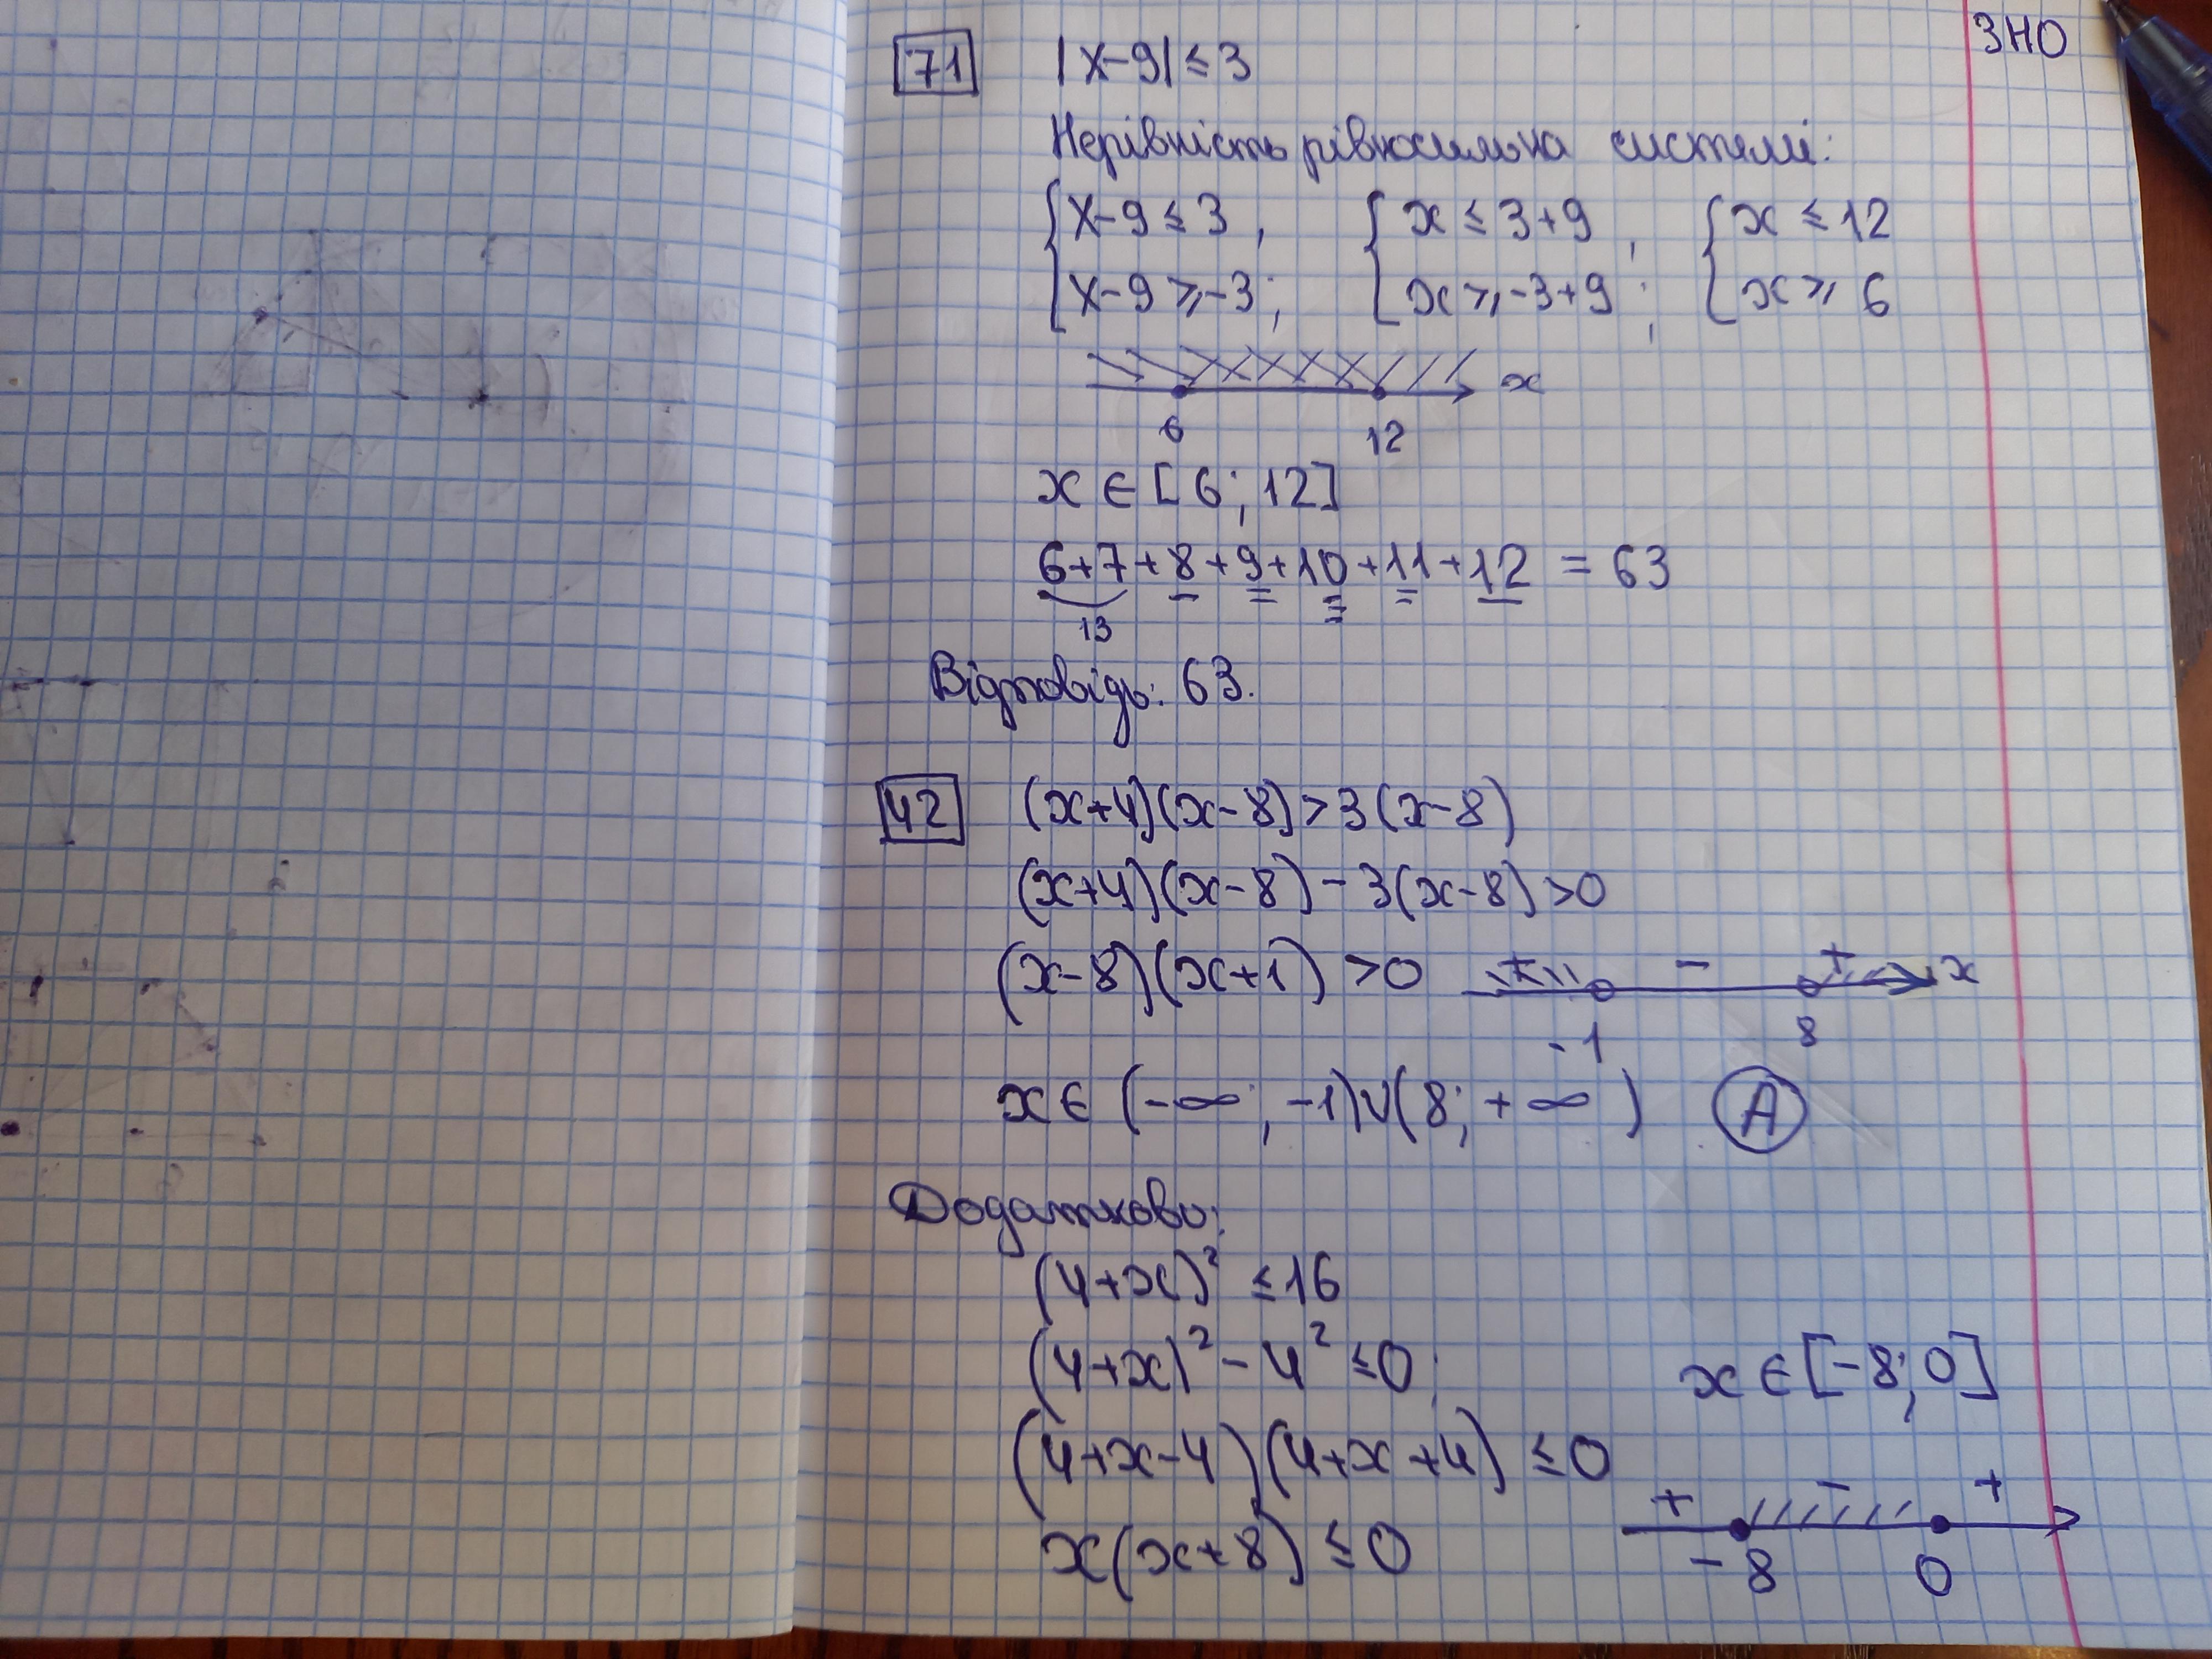 ЗНО
71 |x-9| ≤ 3
Нерівність рівносильна системі:
{ x-9 ≤ 3, { x ≤ 3+9, { x ≤ 12
{ x-9 ≥ -3; { x ≥ -3+9; { x ≥ 6
x
6 12
x ∈ [6; 12]
6+7+8+9+10+11+12 = 63
13
Відповідь: 63.
42 (x+4)(x-8) > 3(x-8)
(x+4)(x-8) - 3(x-8) > 0
(x-8)(x+1) > 0 + - + x
-1 8
x ∈ (-∞; -1)∪(8; +∞) А
Додатково:
(4+x)² ≤ 16
(4+x)² - 4² ≤ 0; x ∈ [-8; 0]
(4+x-4)(4+x+4) ≤ 0
+ - +
x(x+8) ≤ 0 -8 0